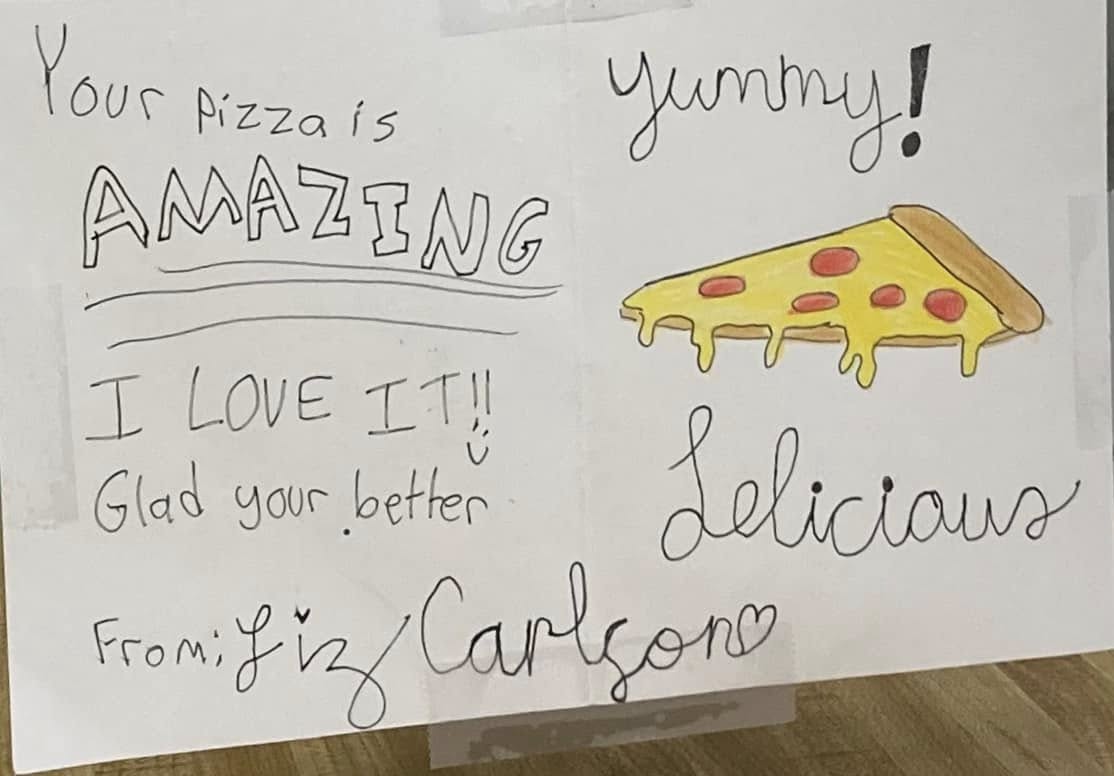 Your pizza is
AMAZING
I LOVE IT!!
Glad your better
From: Liz Carlson
Yummy!
Delicious